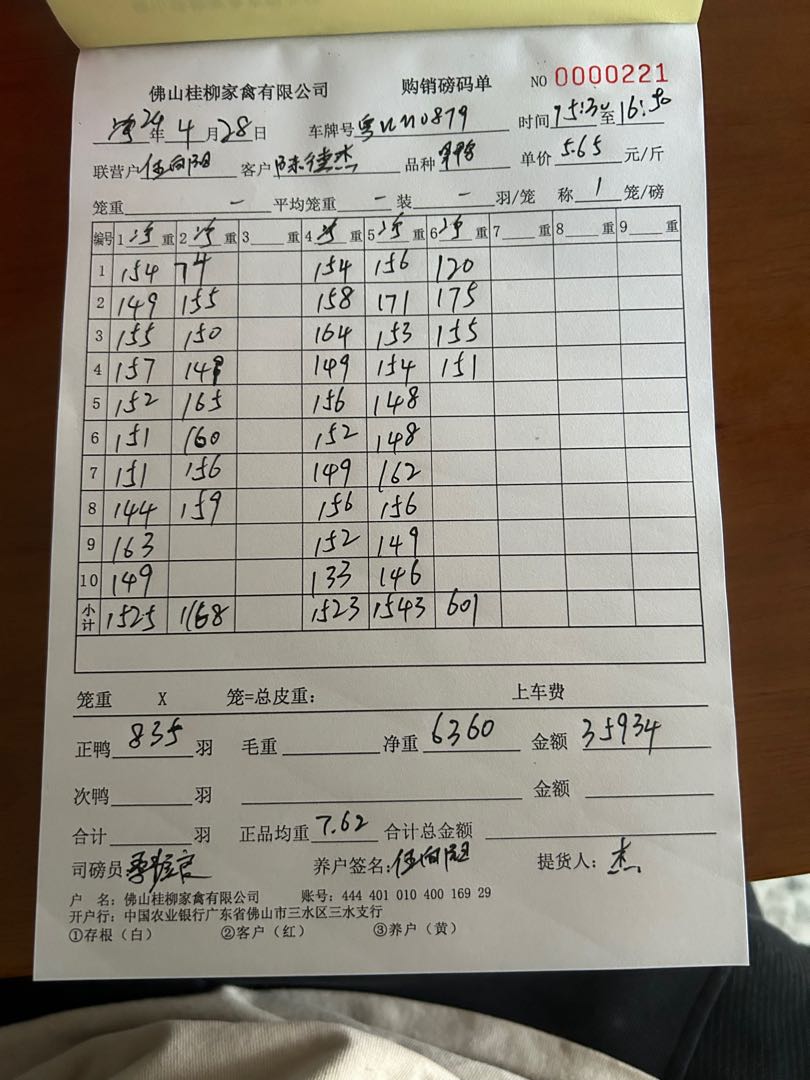 佛山桂柳家禽有限公司 购销磅码单 NO 0000221
24年4月28日 车牌号 时间15:30至16:50
联营户 客户陈德杰 品种 单价5.65元/斤
笼重 一 平均笼重 一 装 一 羽/笼 称 1 笼/磅
编号 1 净 重 2 净 重 3 重 4 净 重 5 净 重 6 净 重 7 重 8 重 9 重
1 154 74 154 156 120
2 149 155 158 171 175
3 155 150 164 153 155
4 157 149 149 154 151
5 152 165 156 148
6 151 160 152 148
7 151 156 149 162
8 144 159 156 156
9 163 152 149
10 149 133 146
小计 1525 1168 1523 1543 601
笼重 X 笼=总皮重: 上车费
正鸭 835 羽 毛重 净重 6360 金额 35934
次鸭 羽 金额
合计 羽 正品均重 7.62 合计总金额
司磅员 养户签名: 提货人: 杰
户 名: 佛山桂柳家禽有限公司 账号: 444 401 010 400 169 29
开户行: 中国农业银行广东省佛山市三水区三水支行
①存根（白） ②客户（红） ③养户（黄）